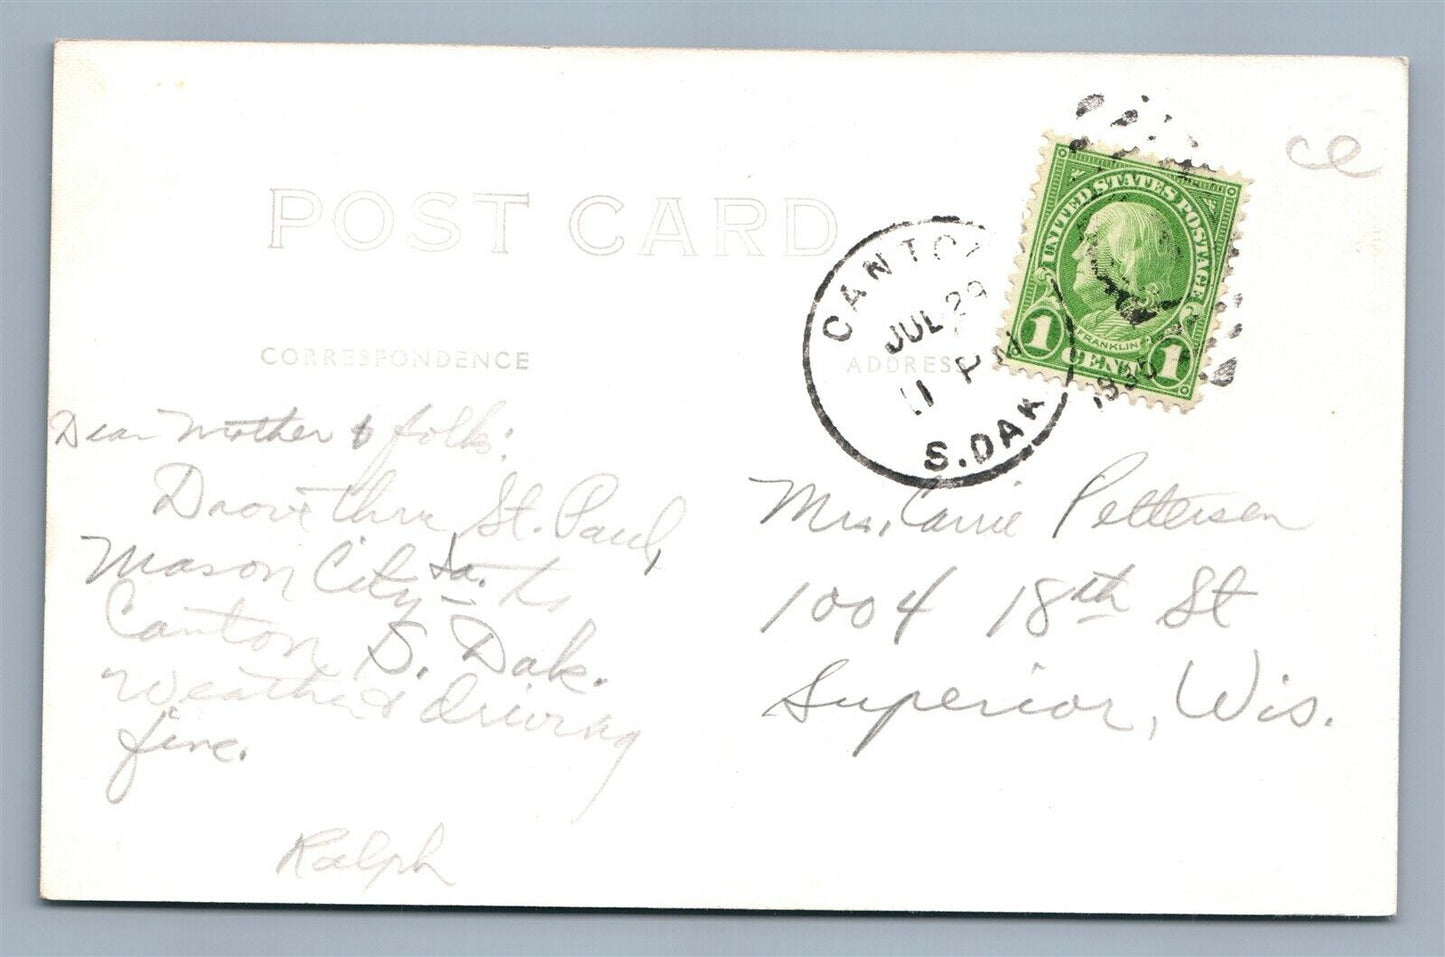 ce
POST CARD
UNITED STATES POSTAGE
FRANKLIN
1 CENT 1
CANTON
JUL 29
11 PM
S. DAK
CORRESPONDENCE
ADDRESS
Dear Mother & folks:
Drove thru St. Paul,
Mason City Ia. to
Canton, S. Dak.
Weather & driving
fine.
Ralph
Mrs. Carrie Pettersen
1004 18th St
Superior, Wis.